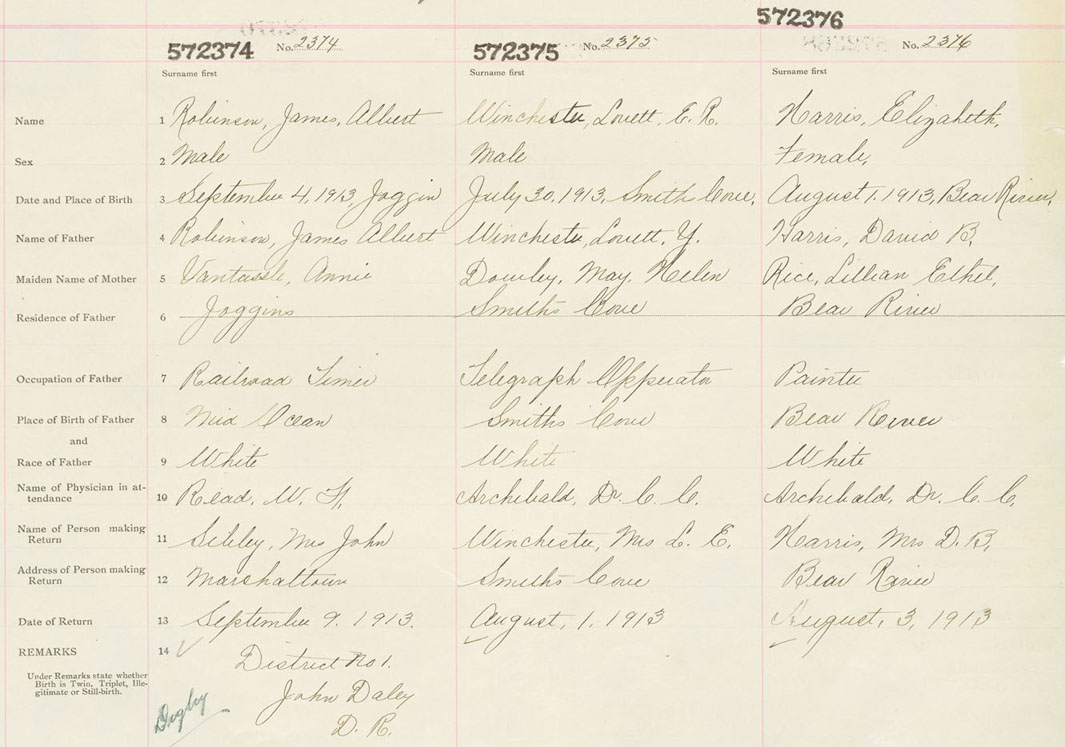 572374 No. 2374 572375 No. 2375 572376 No. 2376
Surname first Surname first Surname first
Name 1 Robinson, James, Albert Winchester, Lovett E. R. Harris, Elizabeth,
Sex 2 Male Male Female,
Date and Place of Birth 3 September 4, 1913, Joggin July 30, 1913, Smiths Cove, August 1. 1913, Bear River,
Name of Father 4 Robinson, James Albert Winchester, Lovett, Y. Harris, David B.
Maiden Name of Mother 5 Vantassle, Annie Dowley, May, Helen Rice, Lillian Ethel,
Residence of Father 6 Joggins Smiths Cove Bear River
Occupation of Father 7 Railroad Smiths Cove Telegraph Opperator Painter
Place of Birth of Father 8 Mid Ocean Smiths Cove Bear River
and
Race of Father 9 White White White
Name of Physician in at-
tendence 10 Read, W. F. Archibald, Dr. C. C. Archibald, Dr. C. C.
Name of Person making
Return 11 Sibley, Mrs John Winchester, Mrs L. E. Harris, Mrs D. B.
Address of Person making
Return 12 Marshaltown Smiths Cove Bear River
Date of Return 13 September 9. 1913. August, 1, 1913 August, 3, 1913
REMARKS 14 District No 1.
Under Remarks state whether
Birth is Twin, Triplet, Ille-
gitimate or Still-birth.
John Daley
D. R.
Digby